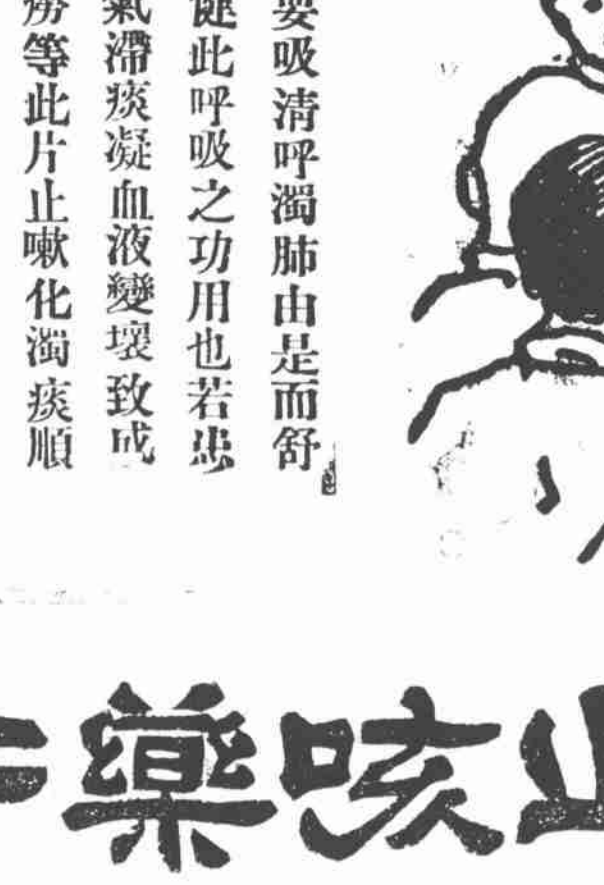 要吸清呼濁肺由是而舒
健此呼吸之功用也若患
氣滯痰凝血液變壞致成
癆等此片止嗽化濁痰順
止咳藥片